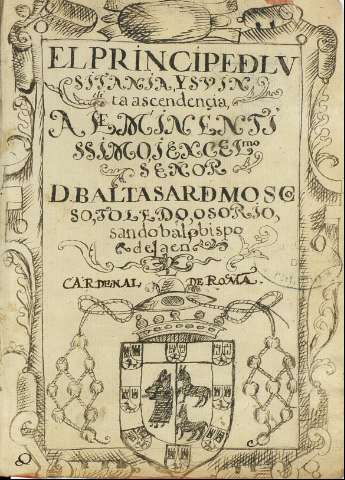 EL PRINCIPE DLV
SITANIA, Y SV IN,
ta ascendençia,
A EMINENTI
SSIMO, I EXCEL.mo
SEÑOR
D. BALTASAR D MOSC
SO, TOLEDO, OSORIO,
sandobal obispo
de Jaen
CARDENAL DE ROMA.